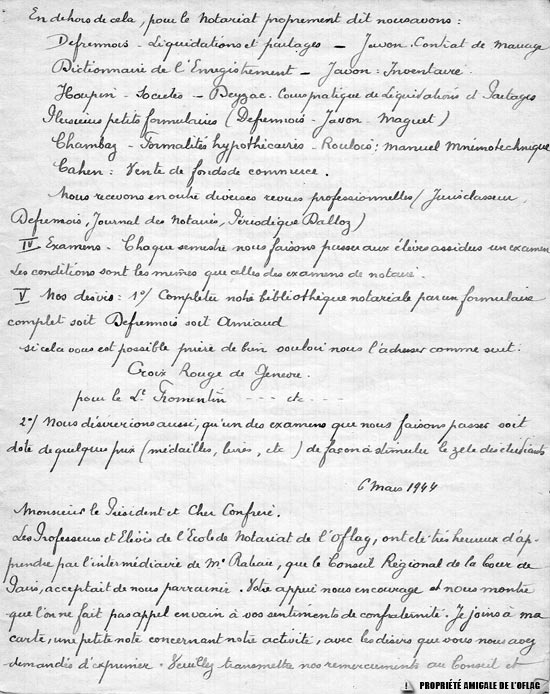 En dehors de cela, pour le Notariat proprement dit nous avons :
Defrennois - Liquidations et partages - Javon. Contrat de Mariage
Dictionnaire de l'Enregistrement - Javon : Inventaire.
Houpin - Sociétés - Beyzac. Cours pratique de Liquidations et Partages
Plusieurs petits formulaires (Defrennois - Javon - Maguet)
Chambaz - Formalités hypothécaires - Roulois ; manuel Mnémotechnique
Cahen : Vente de fonds de commerce.
Nous recevons en outre diverses revues professionnelles (Jurisclasseur
Defrennois, Journal des Notaires, Périodique Dalloz)
IV Examens - Chaque semestre nous faisons passer aux élèves assidus un examen
Les conditions sont les mêmes que celles des examens de notaire.
V Nos désirs : 1°/ Compléter notre bibliothèque notariale par un formulaire
complet soit Defrennois soit Amiaud
si cela vous est possible prière de bien vouloir nous l'adresser comme suit :
Croix Rouge de Genève.
pour le Lt Fromentin --- etc ---
2°/ Nous désirerions aussi, qu'un des examens que nous faisons passer soit
doté de quelques prix (médailles, livres, etc) de façon à stimuler le zèle des étudiants
6 Mars 1944
Monsieur le Président et Cher Confrère.
Les Professeurs et Elèves de l'Ecole de Notariat de l'Oflag, ont été très heureux d'ap-
prendre par l'intermédiaire de Me Rabaie, que le Conseil Régional de la Cour de
Paris, acceptait de nous parrainer. Votre appui nous encourage et nous montre
que l'on ne fait pas appel en vain à vos sentiments de confraternité. Je joins à ma
carte, une petite note concernant notre activité, avec les désirs que vous nous avez
demandés d'exprimer. Veuillez transmettre nos remerciements au Conseil et
PROPRIÉTÉ AMICALE DE L'OFLAG